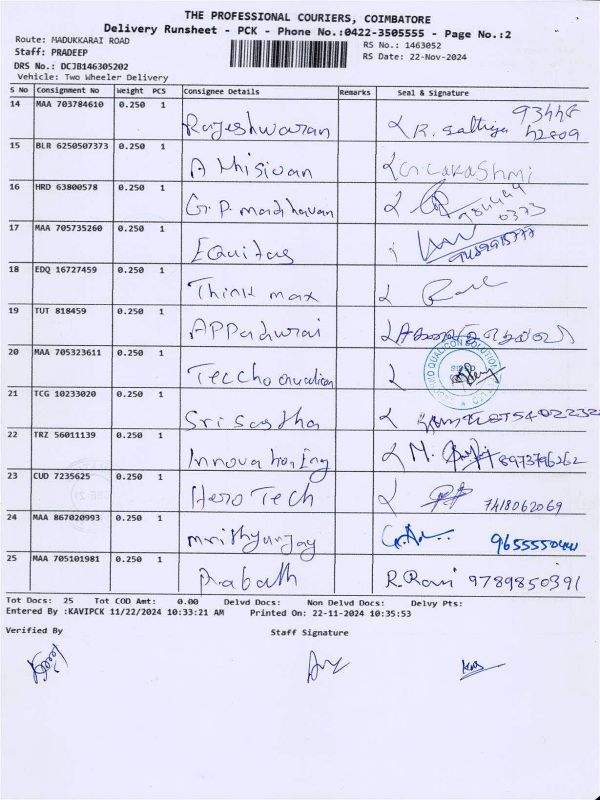 THE PROFESSIONAL COURIERS, COIMBATORE
Delivery Runsheet - PCK - Phone No.:0422-3505555 - Page No.:2
Route: MADUKKARAI ROAD
RS No.: 1463052
Staff: PRADEEP
RS Date: 22-Nov-2024
DRS No.: DCJB146305202
Vehicle: Two Wheeler Delivery
S No Consignment No Weight PCS Consignee Details Remarks Seal & Signature
14 MAA 703784610 0.250 1 Rajeshwaran R. Sathya
15 BLR 6250507373 0.250 1 G. Lakashmi
16 HRD 63800578 0.250 1 G.P. madhavan
17 MAA 705735260 0.250 1 Equitas
18 EDQ 16727459 0.250 1 Think max
19 TUT 818459 0.250 1 APPadurai
20 MAA 705323611 0.250 1
21 TCG 10233020 0.250 1 Sri Sastha
22 TRZ 56011139 0.250 1 Innovation Eng M. 8973796262
23 CUD 7235625 0.250 1 Hero Tech 7418062069
24 MAA 867020993 0.250 1 mrithyunjay
25 MAA 705101981 0.250 1 Prabath R. Ravi 9789850391
Tot Docs: 25 Tot COD Amt: 0.00 Delvd Docs: Non Delvd Docs: Delvy Pts:
Entered By :KAVIPCK 11/22/2024 10:33:21 AM Printed On: 22-11-2024 10:35:53
Verified By Staff Signature